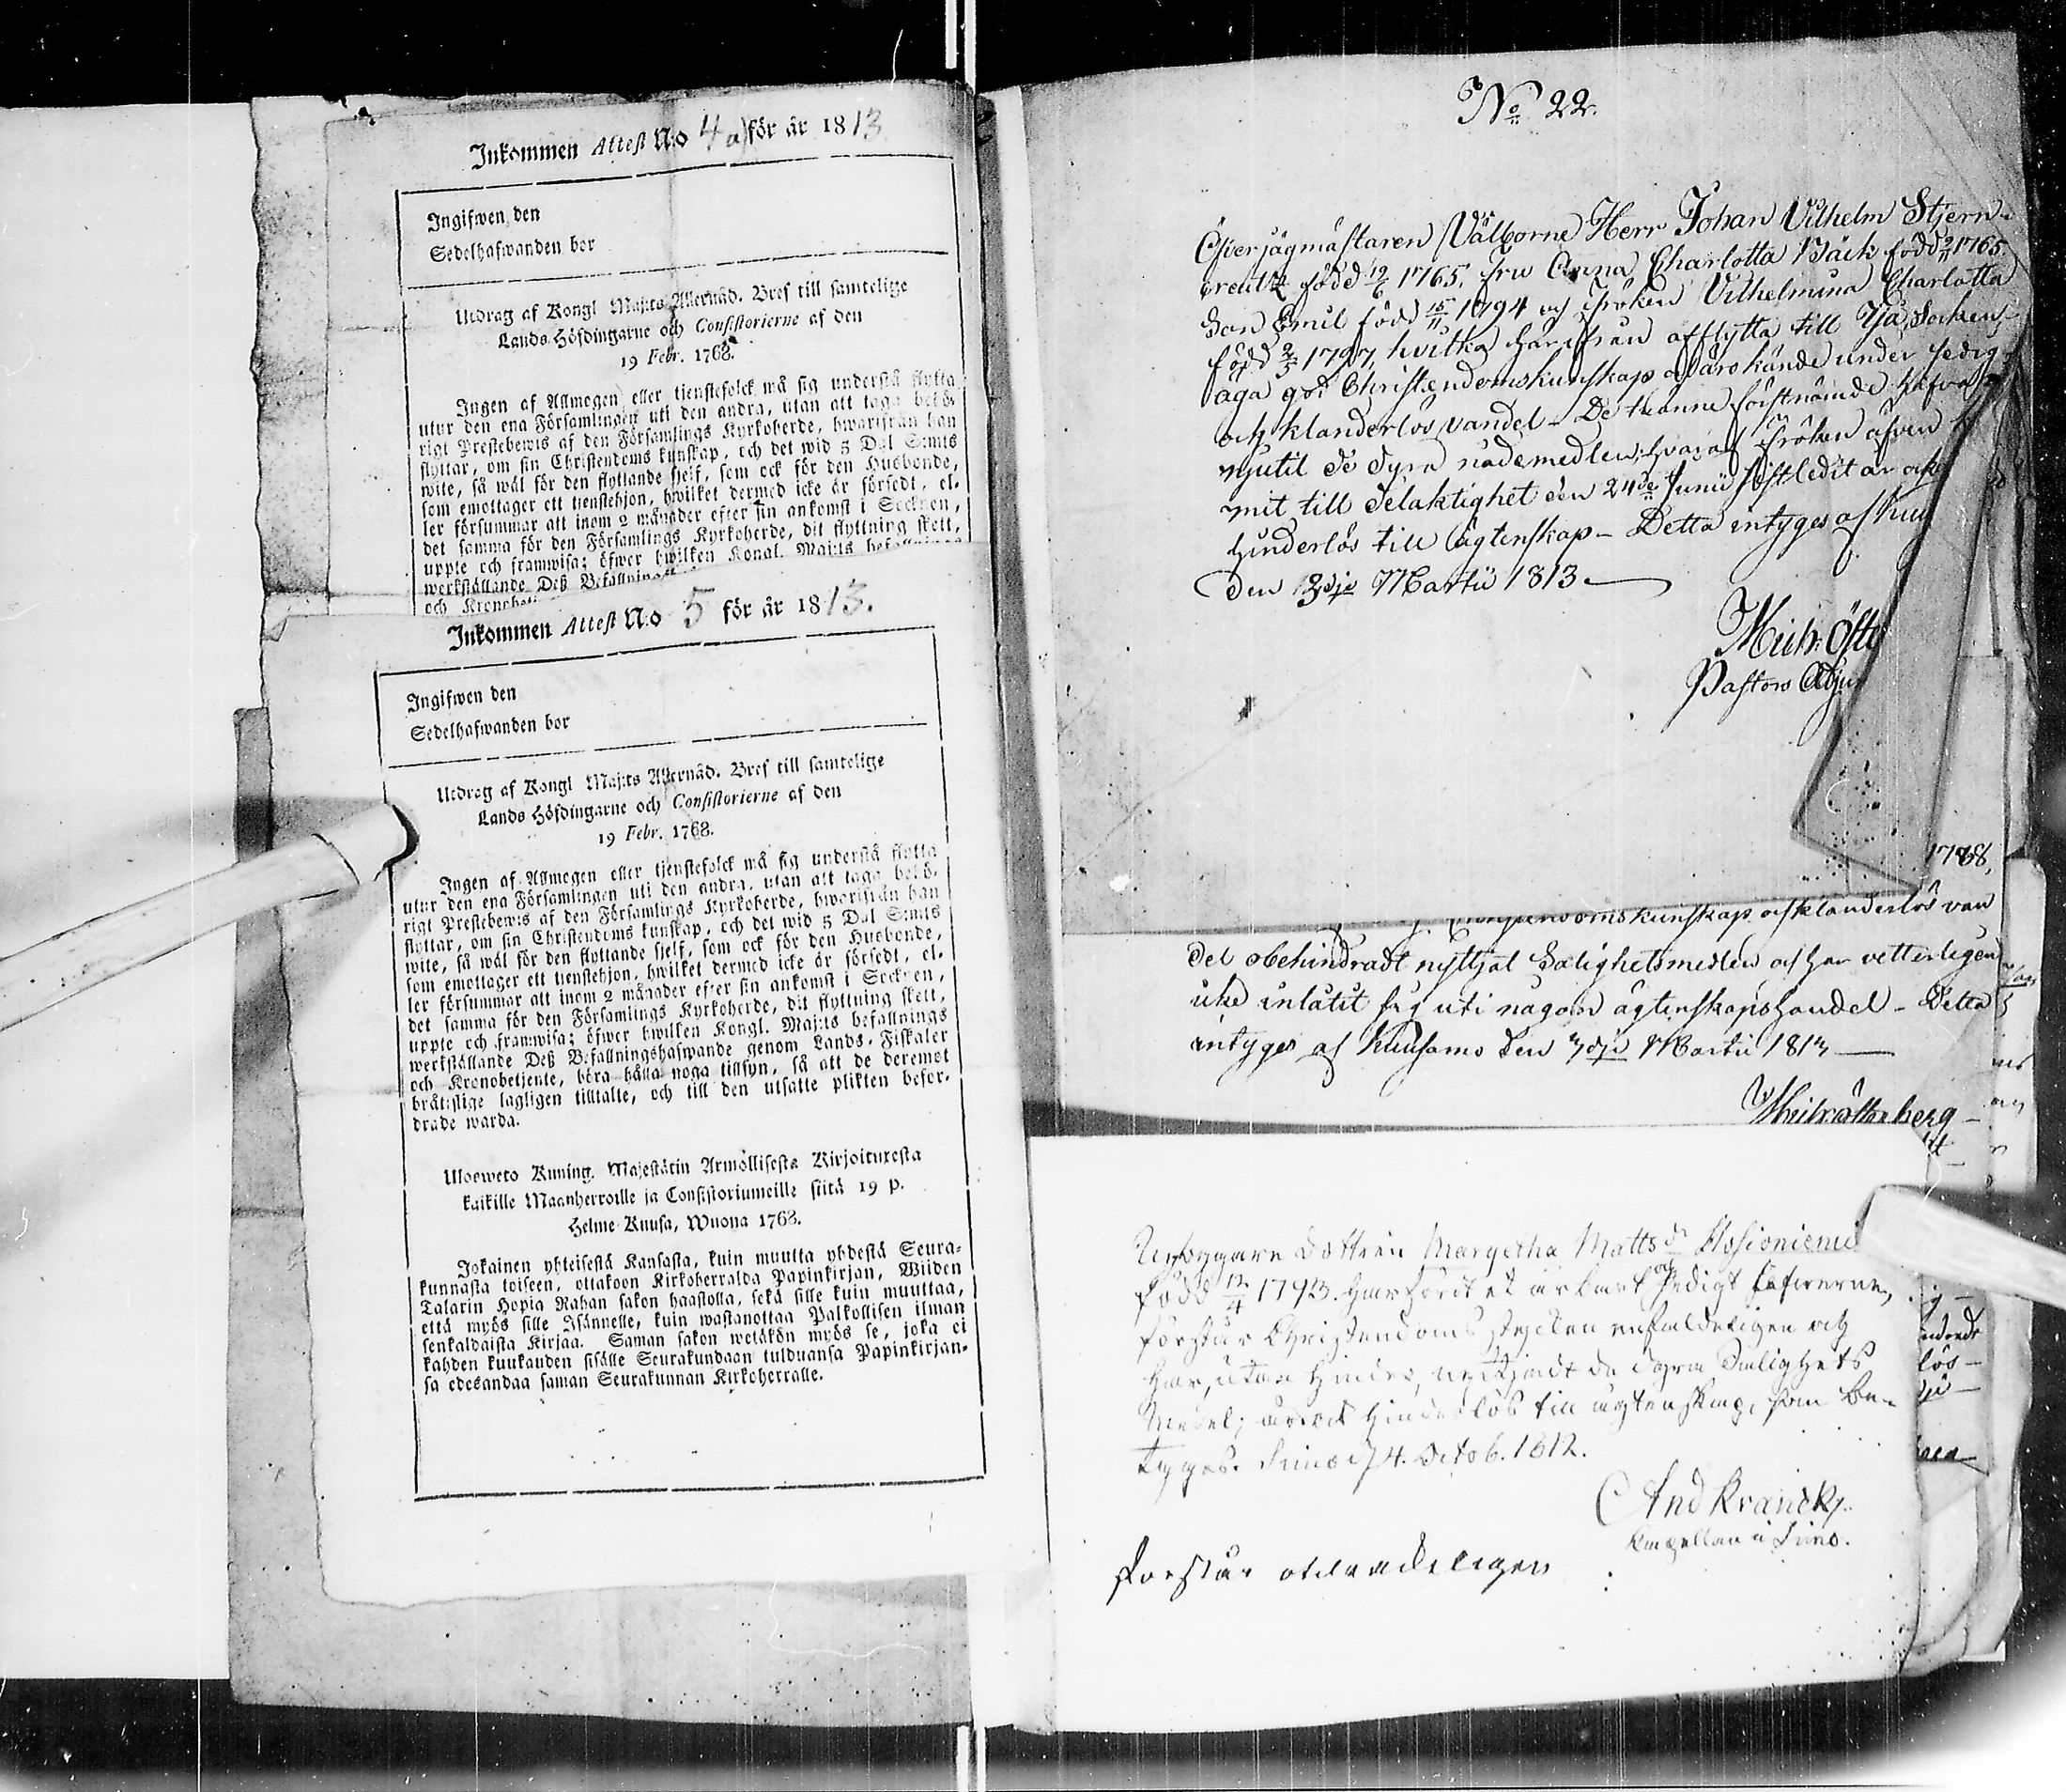 Inkommen Attest N:o 4 a) för år 1813
Ingifwen den
Sedelhafwanden bor
Utdrag af Kongl Maj:ts Allernåd. Bref till samtelige
Lands Höfdingarne och Consistorierne af den
19 Febr. 1768.
Ingen af Allmogen eller tjenstefolck må sig understå flytta
utur den ena Församlingen uti den andra, utan att taga behö-
rigt Prestebewis af den Församlings Kyrkoherde, hwarifrån han
flyttar, om sin Christendoms kunskap, och det wid 5 Dal S:mts
wite, så wäl för den flyttande sjelf, som ock för den Husbonde,
som emottager ett tienstehjon, hwilket dermed icke är försedt, el-
ler försummar att inom 2 månader efter sin ankomst i Socknen,
det samma för den Församlings Kyrkoherde, dit flyttning skett,
uppte och framwisa; öfwer hwilken Kongl. Maj:ts befallnings
werkställande Deß Befallnings
och Kronobetj
Inkommen Attest N:o 5 för år 1813.
Ingifwen den
Sedelhafwanden bor
Utdrag af Kongl Maj:ts Allernåd. Bref till samtelige
Lands Höfdingarne och Consistorierne af den
19 Febr. 1768.
Ingen af Allmogen eller tjenstefolck må sig understå flytta
utur den ena Församlingen uti den andra, utan att taga behö-
rigt Prestebewis af den Församlings Kyrkoherde, hwarifrån han
flyttar, om sin Christendoms kunskap, och det wid 5 Dal S:mts
wite, så wäl för den flyttande sjelf, som ock för den Husbonde,
som emottager ett tienstehjon, hwilket dermed icke är försedt, el-
ler försummar att inom 2 månader efter sin ankomst i Socknen,
det samma för den Församlings Kyrkoherde, dit flyttning skett,
uppte och framwisa; öfwer hwilken Kongl. Maj:ts befallnings
werkställande Deß Befallningshafwande genom Lands-Fiskaler
och Kronobetjente, böra hålla noga tillsyn, så att de deremot
bråtslige lagligen tilltalte, och till den utsatte plikten befor-
drade warda.
Ulosweto Kuning. Majestätin Armollisesta Kirjoituxesta
kaikille Maanherroille ja Consistoriumeille siitä 19 p.
Helme Kuusa, Wuona 1768.
Jokainen yhteisestä Kansasta, kuin muutta yhdestä Seura-
kunnasta toiseen, ottakoon Kirkoherralda Papinkirjan, Wiiden
Talarin Hopia Rahan sakon haastolla, sekä sille kuin muuttaa,
että myös sille Isännelle, kuin wastanottaa Palkollisen ilman
senkaldaista Kirjaa. Saman sakon wetäkön myös se, joka ei
kahden kuukauden sisälle Seurakundaan tulduansa Papinkirjan-
sa edesandaa saman Seurakunnan Kirkoherralle.
No 22.
Öfverjägmästaren Välborne Herr Johan Vilhelm Stjern-
creutz född 12/6 1765, Fru Anna Charlotta Bäck född 2/11 1765.
Son Emil född 15/11 1794 och Fröken Vilhelmina Charlotta
född 2/5 1797, hvilka härifrån afflytta till Ijå Sockens
äga god Christendomskunskap och äro kände under sedig
och klanderlös vandel - De trenne förstnämde hafva
njutit de dyra nådemedlen, hvaraf Fröken äfven
mit till delaktighet den 24de Junii sistledit år och
hinderlös till ägtenskap - Detta intyges af Kuu
den 3dje Martii 1813
Mich: Öste
Pastors Adju
1768,
domskunskap och klanderlös van
del obehindradt nyttjat Salighetsmedlen och har vetterligen
icke inlåtit sig uti någon ägtenskapshandel - Detta
intyges af Kuusamo den 3dje Martii 1813
Mich: Österberg
Nybyggare dottren Margetha Matts dr
född 12/4 1793. har fördt et ärbart och sedigt lefverne,
förstår Christendoms stycken enfaldeligen och
har, utan hinder, nyttjadt de dyra Salighets
Medel; är ock hinderlös till ägtenskap, som be-
tygas. Simo d 4. Octob. 1812.
And Kranck
Kapellan i Simo.
förstår otadeligen